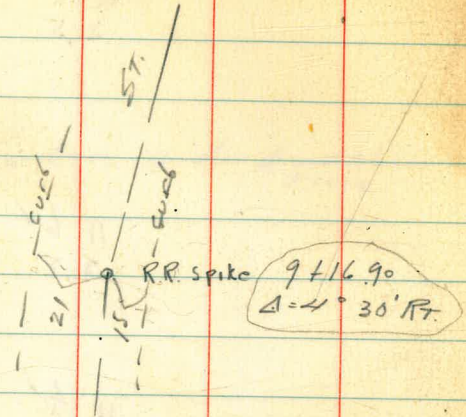 ST.
curb
curb
R.R. Spike 9+16.90
Δ=4° 30' RT.
21
15